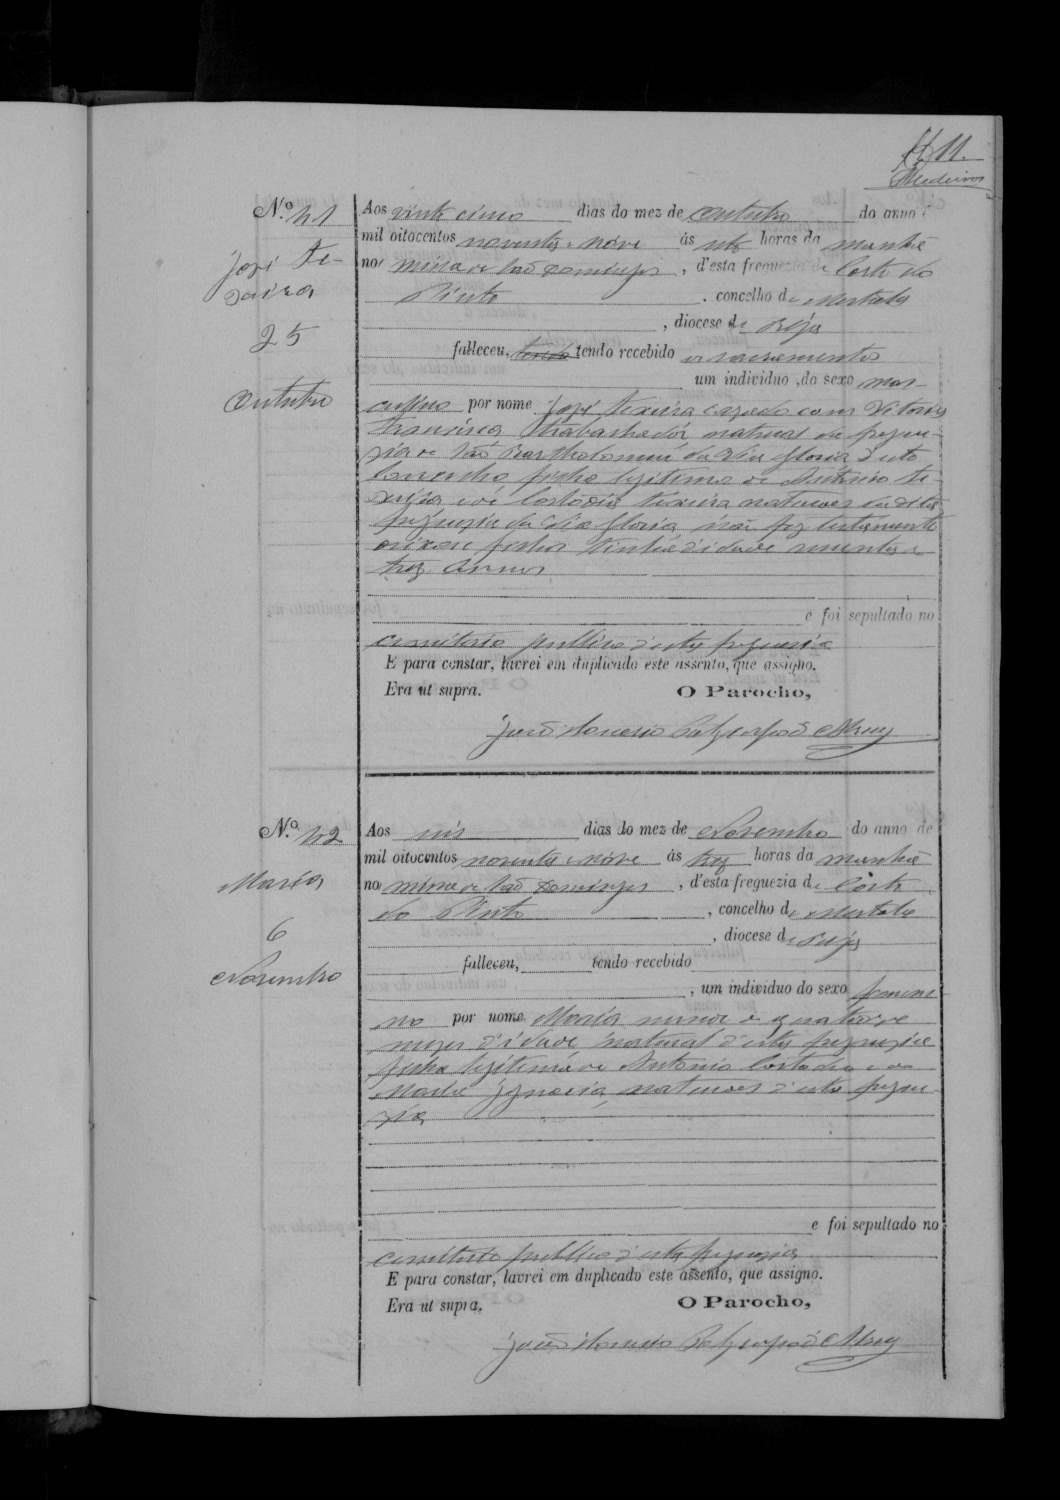 11.
Medeiros
N.º 41
José Te-
xeira
25
Outubro
Aos vinte cinco dias do mez de Outubro do anno
mil oitocentos noventa e nove ás horas da manhã
no mina de São Domingos, d'esta freguezia de Corte do
Pinto, concelho de Mertola
, diocese de Beja
falleceu, tendo tendo recebido os sacramentos
um individuo, do sexo mas-
culino por nome José Texeira cazado com Vitoria
Francisca trabalhador natural da fregue-
zia de São Bartholomeu da Via Gloria d'este
concelho filho legitimo de Antonio Te-
xeira e de Custodia Texeira naturaes da dita
freguezia da Via Gloria não fez testamento
deixou filhos tinha d'idade
trez annos
e foi sepultado no
cemiterio publico d'esta freguezia
E para constar, lavrei em duplicado este assento, que assigno.
Era ut supra. O Parocho,
N.º 42
Maria
6
Novembro
Aos seis dias do mez de Novembro do anno de
mil oitocentos noventa e nove ás trez horas da manhã
no mina de São Domingos, d'esta freguezia de Corte
do Pinto, concelho de Mertola
, diocese de Beja
falleceu, tendo recebido
, um individuo do sexo femini-
no por nome Maria menor de quatorze
mezes d'idade natural d'esta freguezia
filha legitima de Antonio Custodio e de
Maria Ignacia, naturaes d'esta fregue-
zia
e foi sepultado no
cemiterio publico d'esta freguezia
E para constar, lavrei em duplicado este assento, que assigno.
Era ut supra. O Parocho,